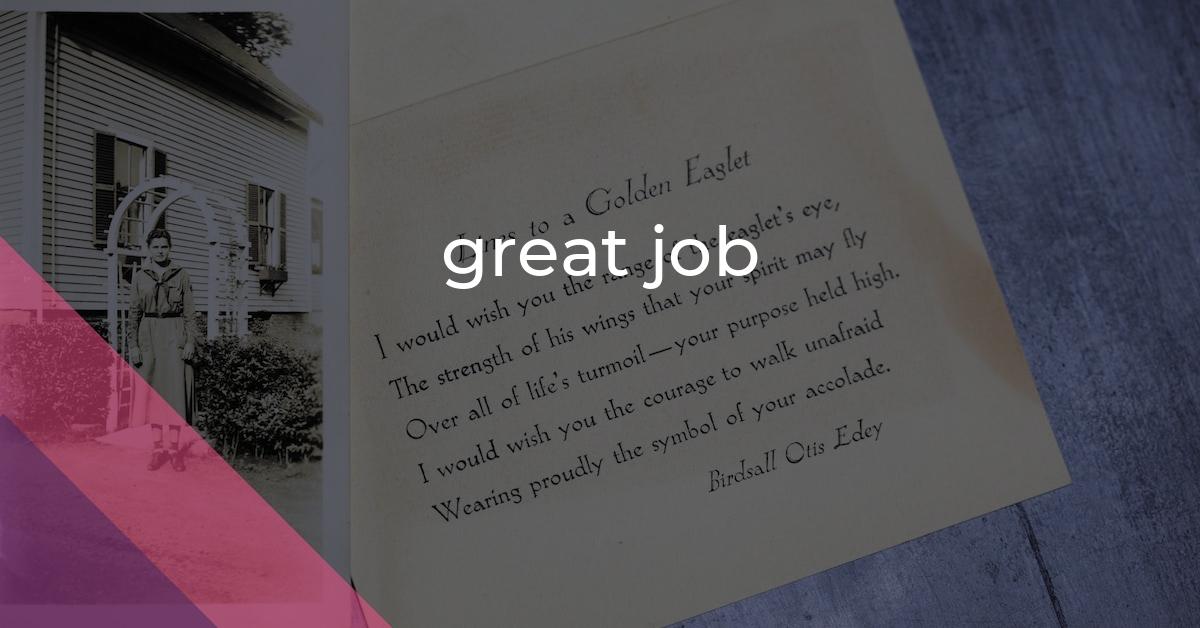 Lines to a Golden Eaglet
great job
I would wish you the range of the eaglet's eye,
The strength of his wings that your spirit may fly
Over all of life's turmoil—your purpose held high.
I would wish you the courage to walk unafraid
Wearing proudly the symbol of your accolade.
Birdsall Otis Edey